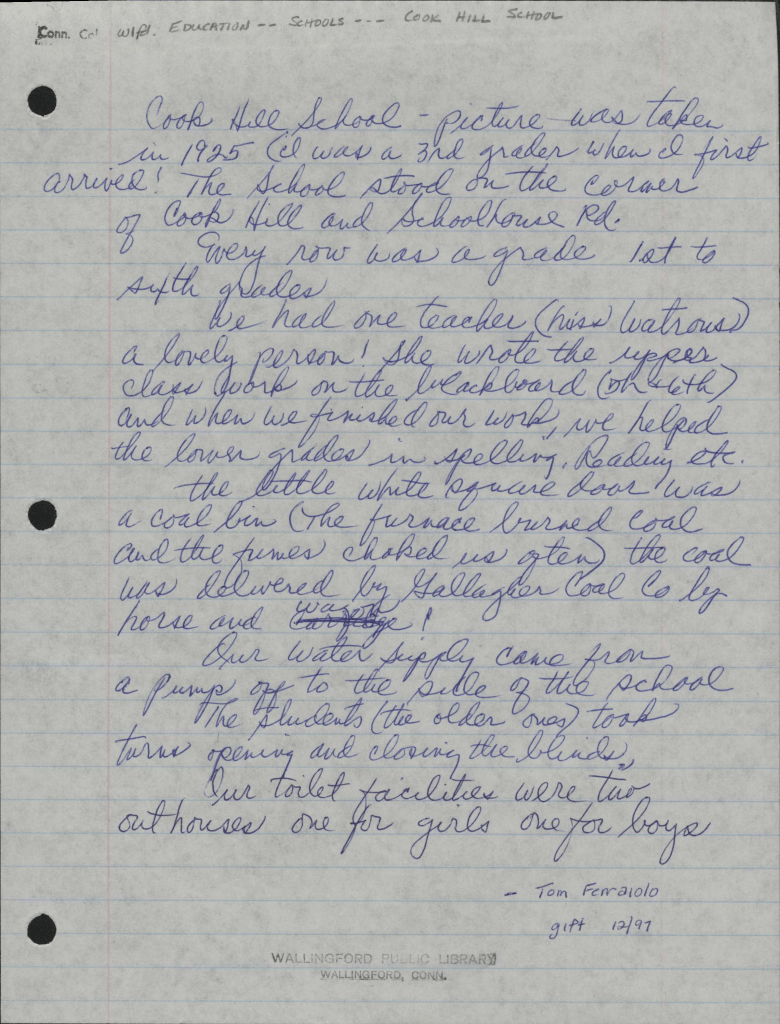 Conn. Col Wlfd. EDUCATION -- SCHOOLS --- COOK HILL SCHOOL
Cook Hill School - picture was taken
in 1925 (I was a 3rd grader when I first
arrived! The School stood on the corner
of Cook Hill and Schoolhouse Rd.
Every row was a grade 1st to
sixth grades
We had one teacher (Miss Watrous)
a lovely person! She wrote the upper
class work on the blackboard (5th & 6th)
and when we finished our work, we helped
the lower grades in spelling, Reading etc.
The little white square door was
a coal bin (The furnace burned coal
and the fumes choked us often) the coal
was delivered by Gallagher Coal Co by
wagon
horse and carriage!
Our water supply came from
a pump off to the side of the school
The students (the older ones) took
turns opening and closing the blinds,
Our toilet facilities were two
outhouses one for girls one for boys
- Tom Ferraiolo
gift 12/97
WALLINGFORD PUBLIC LIBRARY
WALLINGFORD, CONN.